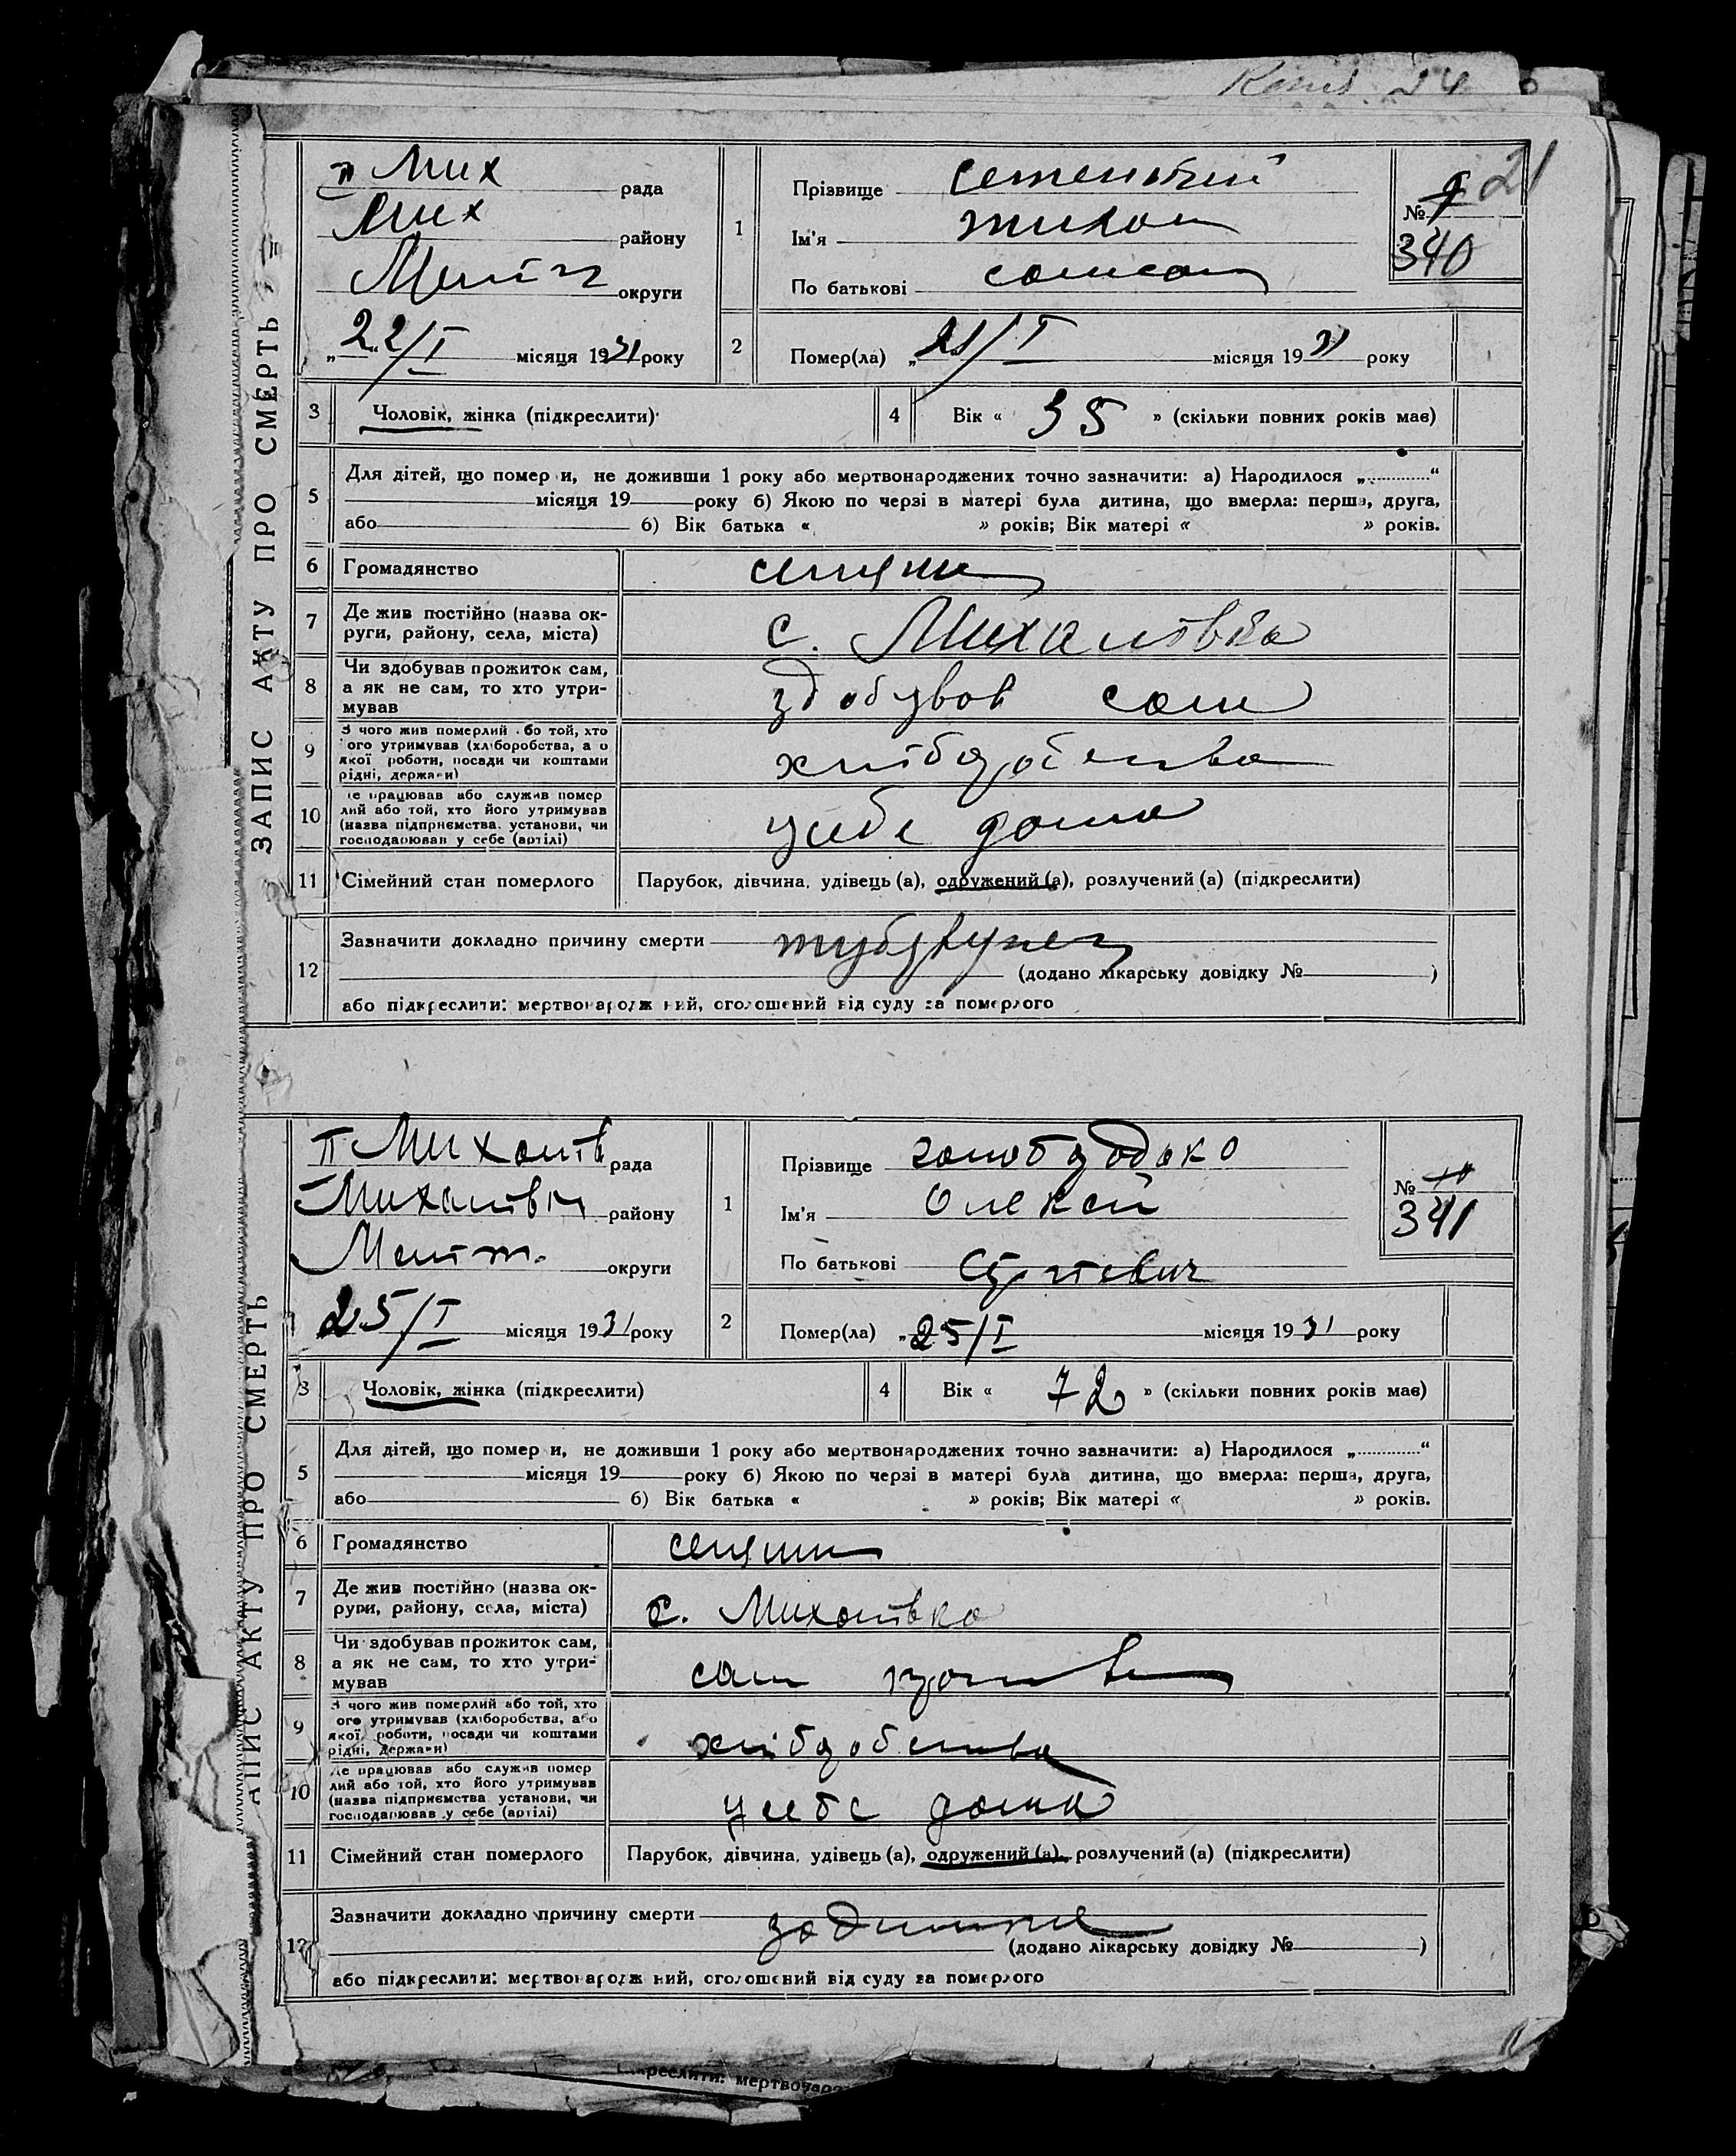 21
ЗАПИС АКТУ ПРО СМЕРТЬ
II Мих рада
Мих району
округи
„22/I місяця 1931 року
1
Прізвище
Ім'я
По батькові
№ 9
340
2
Помер(ла) „21/I місяця 1931 року
3 Чоловік, жінка (підкреслити)
4 Вік « 35 » (скільки повних років має)
5
Для дітей, що помер и, не доживши 1 року або мертвонароджених точно зазначити: а) Народилося „............“
місяця 19 року б) Якою по черзі в матері була дитина, що вмерла: перша, друга,
або б) Вік батька « » років; Вік матері « » років.
6 Громадянство
7
Де жив постійно (назва ок-
руги, району, села, міста)
с. Михалівка
8
Чи здобував прожиток сам,
а як не сам, то хто утри-
мував
здобував сам
9
З чого жив померлий бо той, хто
ого утримував (хліборобства, а о
якої роботи, посади чи коштами
рідні, держави)
10
е працював або служив помер
лий або той, хто його утримував
(назва підприємства, установи, чи
господарював у себе (артілі)
у себе дома
11 Сімейний стан померлого Парубок, дівчина, удівець (а), одружений (а), розлучений (а) (підкреслити)
12
Зазначити докладно причину смерти
(додано лікарську довідку № )
або підкреслити: мертвонародж ний, оголошений від суду за померлого
АПИС АКТУ ПРО СМЕРТЬ
II Михалів рада
району
Меліт. округи
25/I місяця 1931 року
1
Прізвище
Ім'я Олексій
По батькові
№ 10
341
2
Помер(ла) „25/I місяця 1931 року
3 Чоловік, жінка (підкреслити)
4 Вік « 72 » (скільки повних років має)
5
Для дітей, що помер и, не доживши 1 року або мертвонароджених точно зазначити: а) Народилося „............“
місяця 19 року б) Якою по черзі в матері була дитина, що вмерла: перша, друга,
або б) Вік батька « » років; Вік матері « » років.
6 Громадянство
7
Де жив постійно (назва ок-
руги, району, села, міста)
с. Михалівка
8
Чи здобував прожиток сам,
а як не сам, то хто утри-
мував
сам
9
З чого жив померлий або той, хто
ого утримував (хліборобства, або
якої роботи, посади чи коштами
рідні, держави)
10
Де працював або служив помер
лий або той, хто його утримував
(назва підприємства установи, чи
господарював у себе (артілі)
у себе дома
11 Сімейний стан померлого Парубок, дівчина, удівець (а), одружений (а), розлучений (а) (підкреслити)
12
Зазначити докладно причину смерти
(додано лікарську довідку № )
або підкреслити: мертвонародж ний, оголошений від суду за померлого